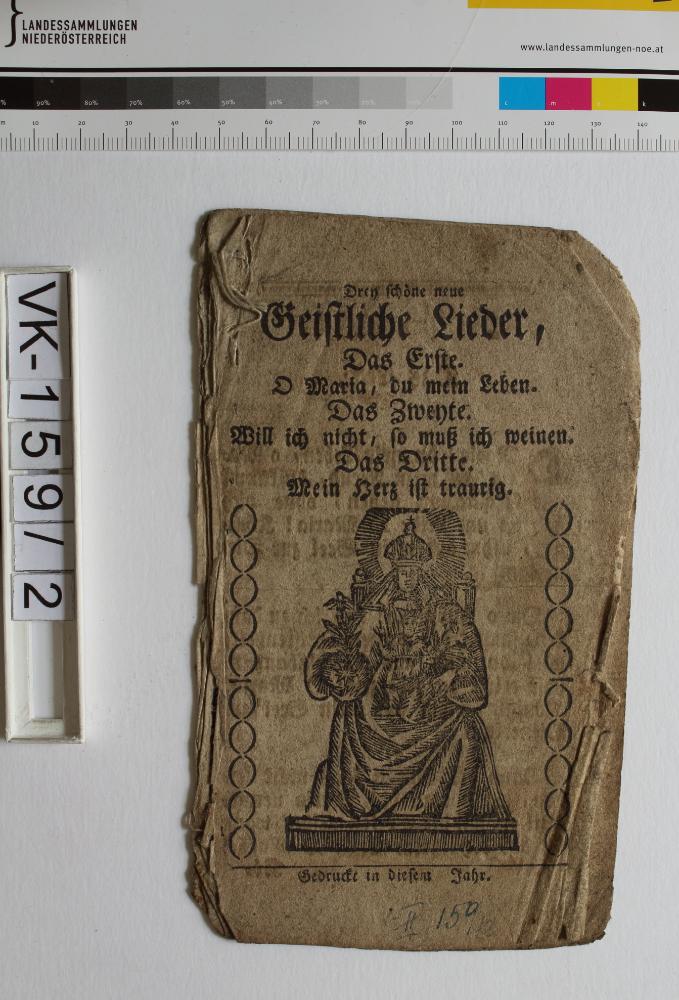 LANDESSAMMLUNGEN
NIEDERÖSTERREICH
www.landessammlungen-noe.at
% 90% 80% 70% 60% 50% 40% 30% 20% 10% c m y k
m 10 20 30 40 50 60 70 80 90 100 110 120 130 140
VK-159/2
Drey schöne neue
Geistliche Lieder,
Das Erste.
O Maria, du mein Leben.
Das Zweyte.
Will ich nicht, so muß ich weinen.
Das Dritte.
Mein Herz ist traurig.
Gedruckt in diesem Jahr.
II 159/2